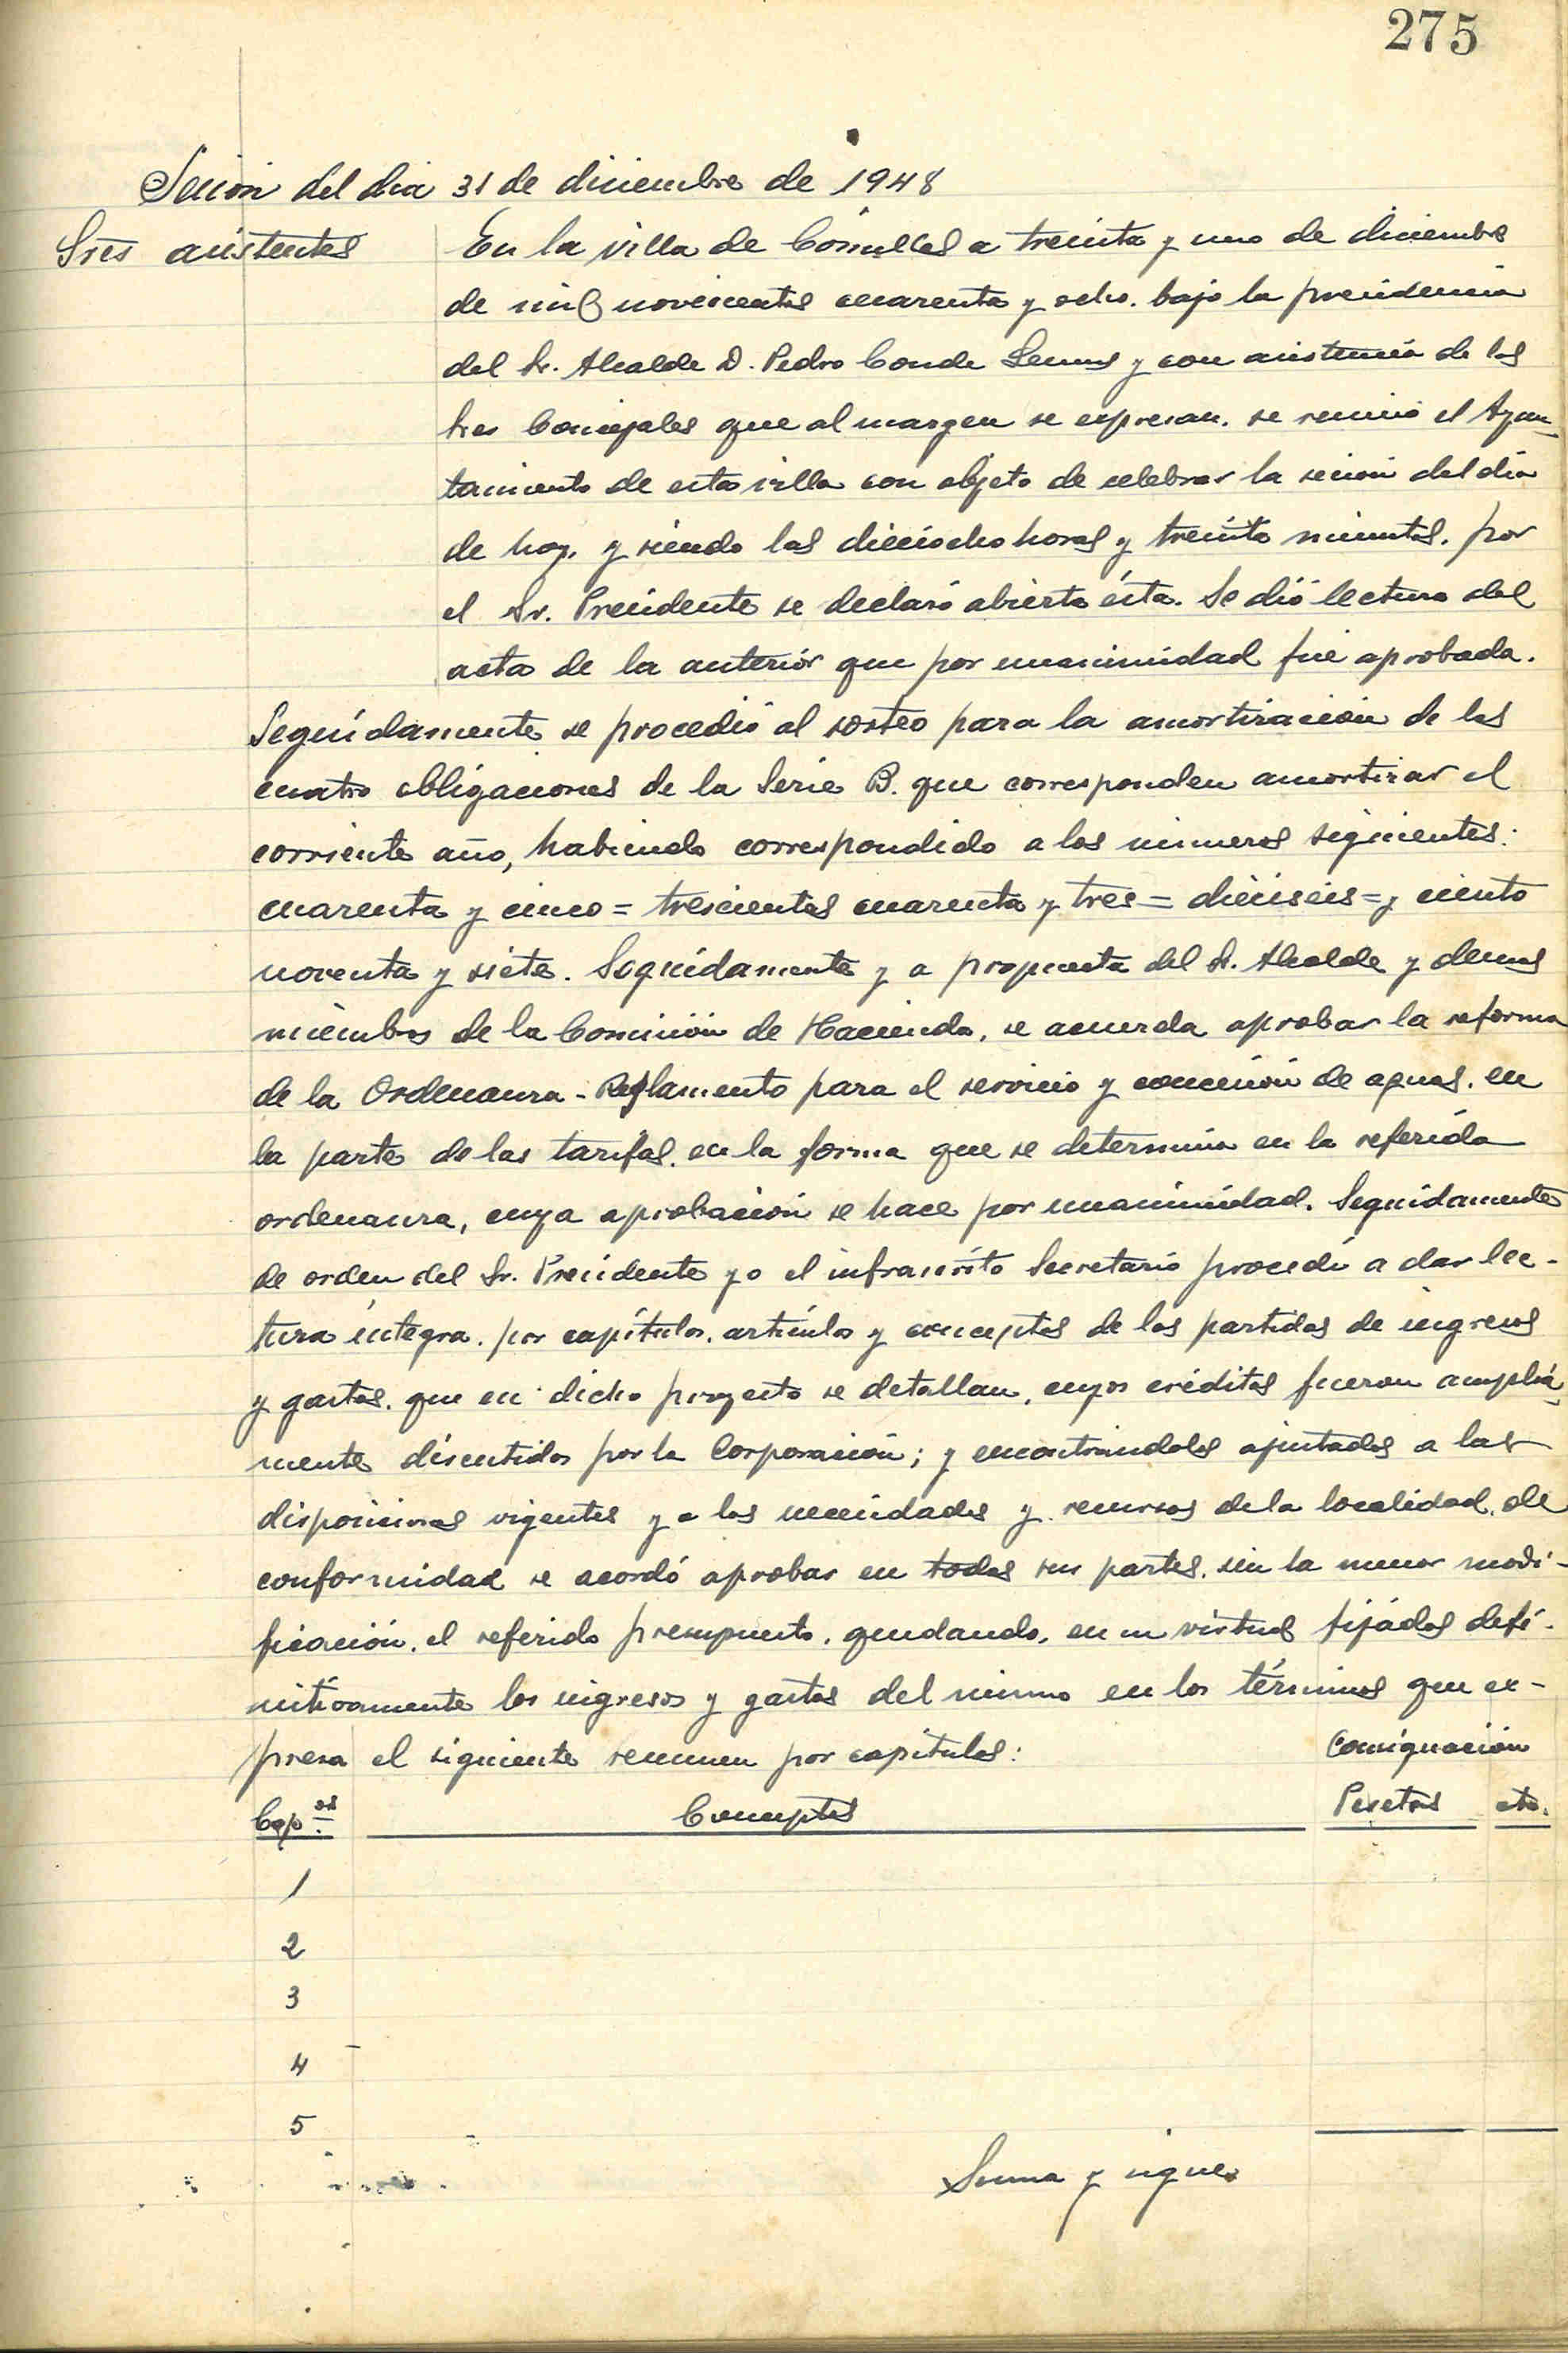 275
Sesion del dia 31 de diciembre de 1948
Sres asistentes
En la villa de Comillas a treinta y uno de diciembre
de mil novecientos cuarenta y ocho. bajo la presidencia
del Sr. Alcalde D. Pedro Conde Lemus y con asistencia de los
Sres Concejales que al margen se expresan. se reunió el Ayun-
tamiento de esta villa con objeto de celebrar la sesión del día
de hoy. y siendo las dieciocho horas y treinta minutos. por
el Sr. Presidente se declaró abierta ésta. Se dió lectura del
acta de la anterior que por unanimidad fué aprobada.
Seguidamente se procedió al sorteo para la amortización de las
cuatro obligaciones de la Serie B. que corresponden amortizar el
corriente año, habiendo correspondido a los números siguientes:
cuarenta y cinco = trescientos cuarenta y tres = dieciseis = y ciento
noventa y siete. Seguidamente y a propuesta del Sr. Alcalde y demas
miembros de la Comisión de Hacienda, se acuerda aprobar la reforma
de la Ordenanza - Reglamento para el servicio y concesión de aguas. en
la parte de las tarifas. en la forma que se determina en la referida
ordenanza, cuya aprobación se hace por unanimidad. Seguidamente
de orden del Sr. Presidente yo el infrascrito Secretario procedí a dar lec-
tura integra. por capítulos. artículos y conceptos de las partidas de ingresos
y gastos. que en dicho proyecto se detallan, cuyos créditos fueron amplia-
mente discutidos por la Corporación; y encontrándolos ajustados a las
disposiciones vigentes y a las necesidades y recursos de la localidad, de
conformidad se acordó aprobar en todas sus partes. sin la menor modi-
ficación. el referido presupuesto. quedando. en su virtud fijados defi-
nitivamente los ingresos y gastos del mismo en los términos que ex-
presa el siguiente resumen por capitulos:
Consignación
Cap.os Conceptos Pesetas cts.
1
2
3
4
5
Suma y sigue